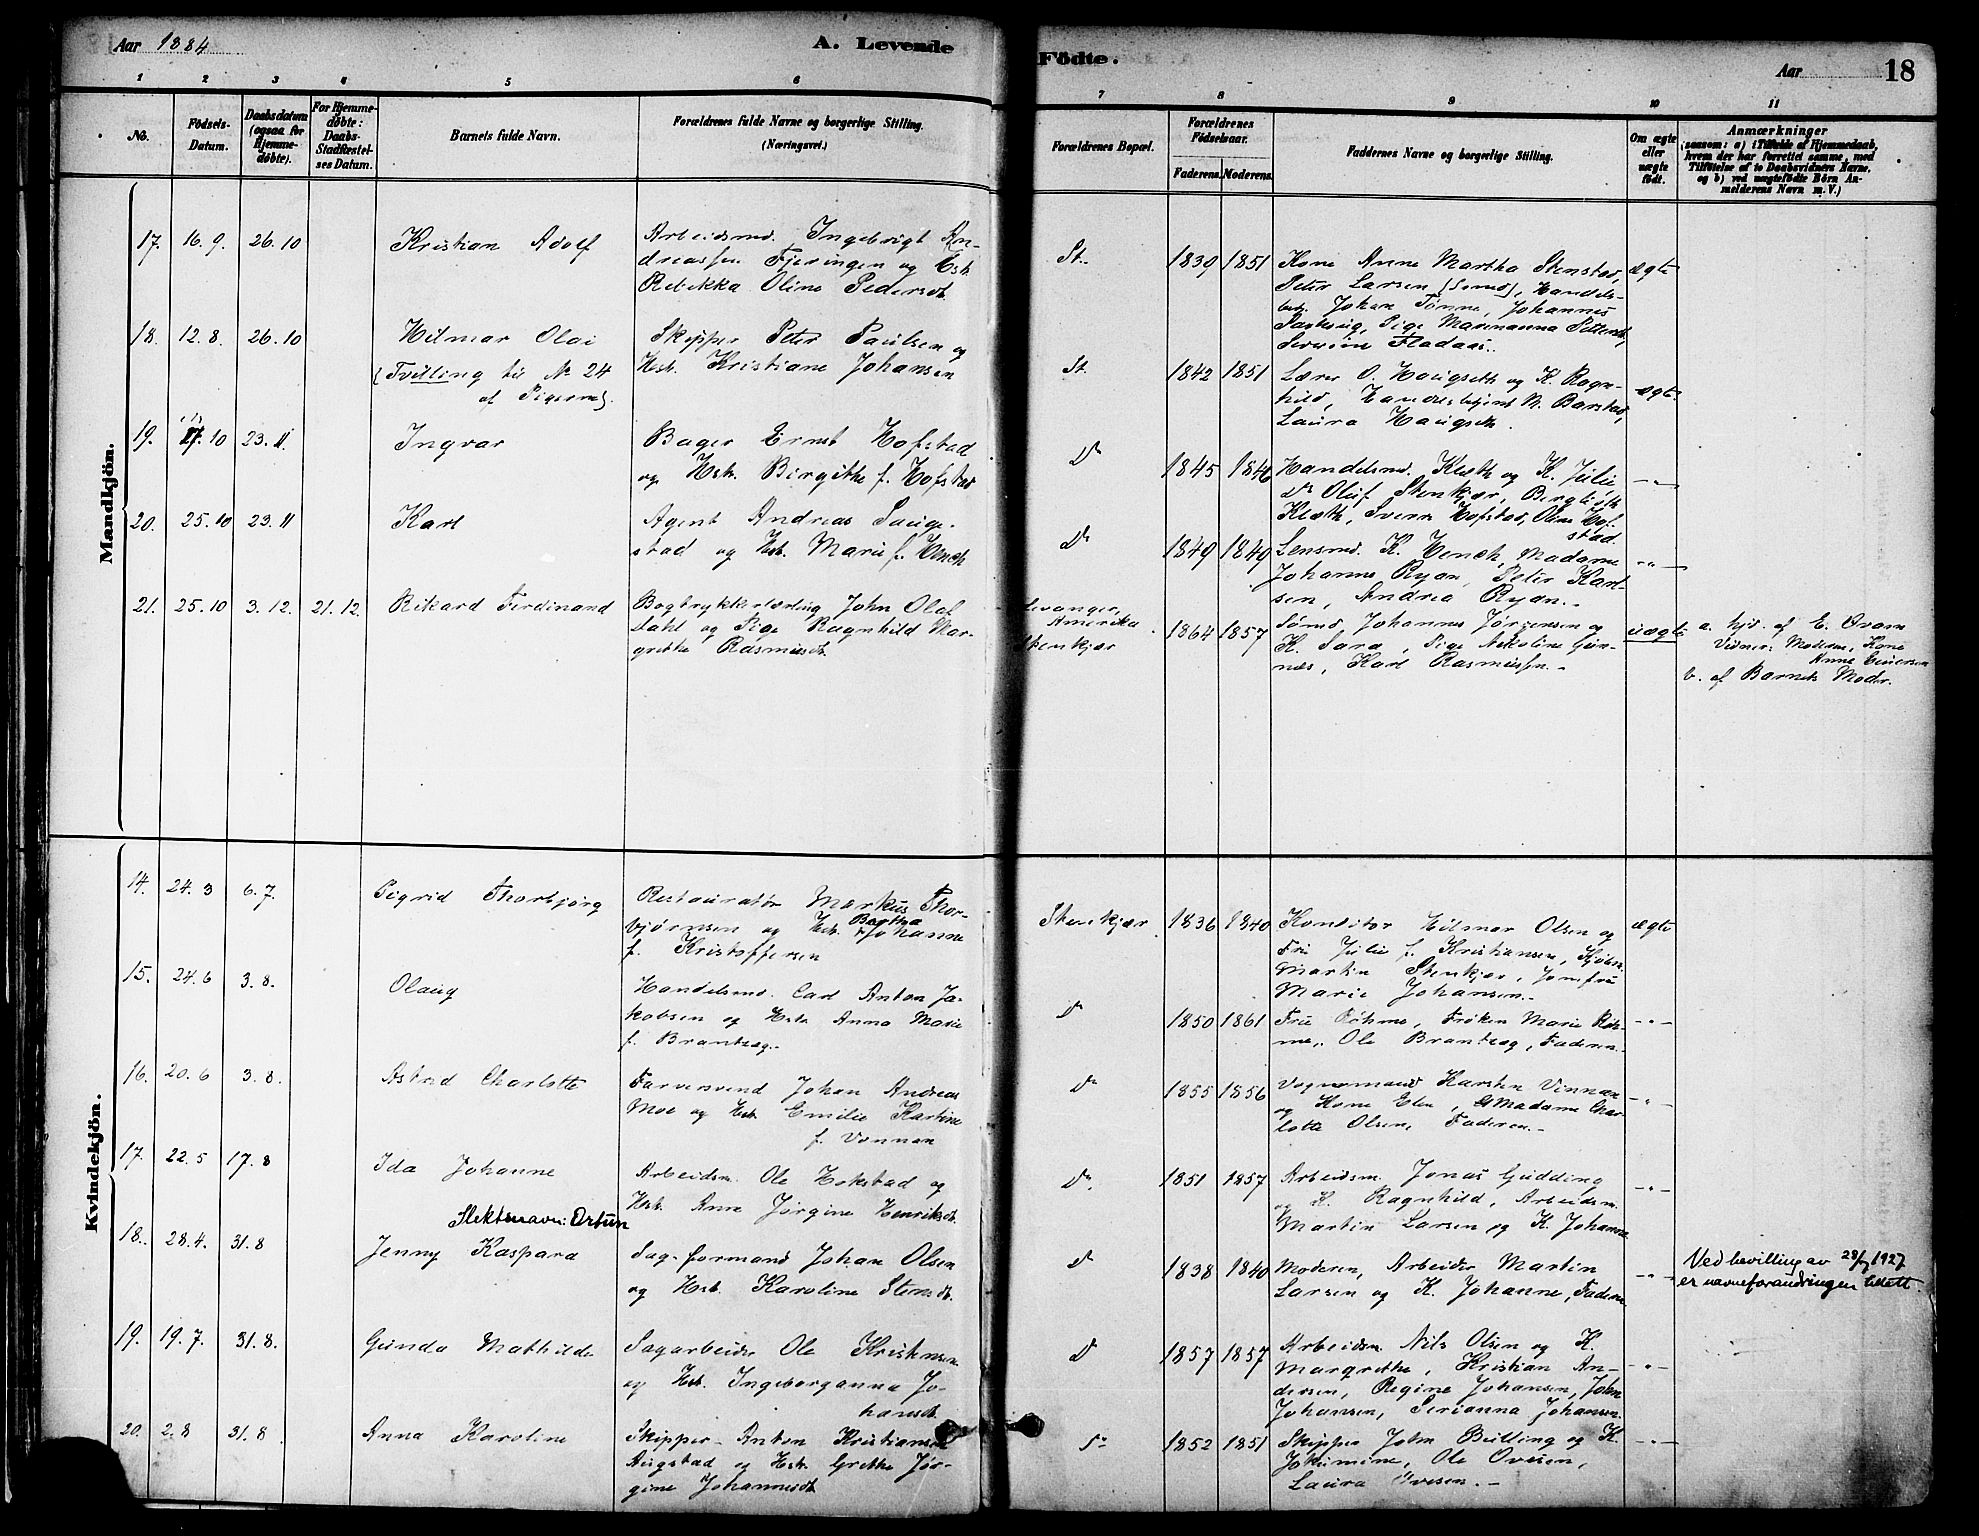 Aar 1884
A. Levende
Födte.
Aar
18
1 2 3 4 5 6 7 8 9 10 11
No.
Födsels-
Datum.
Daabsdatum
(ogsaa for
Hjemme-
döbte).
For Hjemme-
döbte:
Daabs-
Stadfæstel-
ses Datum.
Barnets fulde Navn.
Forældrenes fulde Navne og borgerlige Stilling.
(Næringsvei.)
Forældrenes Bopæl.
Forældrenes
Födselsaar.
Faderens. Moderens.
Faddernes Navne og borgerlige Stilling.
Om ægte
eller
uægte
födt.
Anmærkninger
(saasom: a) i Tilfælde af Hjemmedaab,
hvem der har forrettet samme, med
Tilföielse af to Daabsvidners Navne,
og b) ved uægtefödte Börn An-
melderens Navn m. V.)
Mandkjön.
17. 16. 9. 26. 10
Kristian Adolf
Arbeidsmd. Ingebrigt An-
dreassen Fjeringen og Hst.
Rebekka Oline Pedersdt.
St.
1839 1851
Kone Anne Martha Stenstad,
Peter Larsen (Sømd), Handels-
betj. Johan Tønne, Johannes
Pige Marenanna
ægte
18. 12. 8. 26. 10
Hilmar Olai
(Tvilling til No 24
af Pigerne).
Skipper Peter Paulsen og
Hst. Kristiane Johansen
St.
1842 1851
Lærer O. Haugseth og K. Ragn-
hild, Handelsbetjent N. Barstad,
Laura Haugseth.
ægte.
19. 17. 10 23. 11
Ingvar
Bager Ernst Hofstad
og Hst. Birgithe f. Hofstad
Do
1845 1846
Handelsmd. Klæth og K. Julie
Do Oluf Stenkjær, Bergliot
Klæth, Sverre Hofstad, Oline Hof-
stad.
-"-
20. 25. 10 23. 11
Karl
Agent Andreas Sauge-
stad og Hst. Marie f.
Do
1849 1849
Lensmd. K. Madame
Johanne Ryan, Peter Karl-
sen, Andrea Ryan.-
-"-
21. 25. 10 3. 12. 21. 12.
Rikard Ferdinand
Bogtrykkerlærling John Olaf
Dahl og Pige Ragnhild Mar-
grethe Rasmusdt.
Levanger,
Amerika.
Stenkjær
1864 1857
Sømd. Johannes Jørgensen og
K. Sara, Pige Nikoline Gur-
næs, Karl Rasmussen.-
uægte
a. hjd. af E. Ovam
Vidner: Moderen, Kone
Anne Einersen
b. af Barnets Moder.
Kvindekjön.
14. 24. 3 6. 7.
Sigrid Thorbjørg
Restauratør Markus Thor-
bjørnsen og Hst. Bertha Johanne
f. Kristoffersen
Stenkjær
1836 1840
Konditor Hilmar Olsen og
Fru Julie f. Kristiansen, Kjøbm.
Martin Stenkjær, Jomfru
Marie Johansen.-
ægte
15. 24. 6 3. 8.
Olaug
Handelsmd. Carl Anton Ja-
kobsen og Hst. Anna Marie
f. Brantzæg.-
Do
1850 1861
Fru Bøhme, Frøken Marie Bøh-
me, Ole Brantzæg, Faderen.-
-"-
16. 20. 6 3. 8.
Astrid Charlotte
Farversvend Johan Andreas
Moe og Hst. Emilie Kartine
f. Vinnan
Do
1855 1856
Vognmand Karsten Vinnan
og Kone Elen, Madame Char-
lotte Olsen, Faderen.-
-"-
17. 22. 5 17. 8
Ida Johanne
Arbeidsm. Ole Hokstad og
Hst. Anne Jørgine Henriksdt.
Do.
1851 1857
Arbeidsm. Jonas Gudding
og K. Ragnhild, Arbeidsm.
Martin Larsen og K. Johanne
-"-
18. 28. 4. 31. 8
Slektsnavn: Ørtun
Jenny Kaspara
Sag-formand Johan Olsen
og Hst. Karoline Stensdt.
Do
1838 1840
Moderen, Arbeider Martin
Larsen og K. Johanne, Faderen
-"-
Ved bevilling av 28/ 1927
er navneforandringen tillatt.
19. 19. 7. 31. 8.
Gunda Mathilde
Sagarbeider Ole Kristensen
og Hst. Ingeborganna Jo-
hansdt.
Do
1857 1857
Arbeidsm. Nils Olsen og K.
Margrethe, Kristian An-
dersen, Regine Johansen, John
Johansen, Serianna Johansen.
-"-
20. 2. 8 31. 8.
Anna Karoline
Skipper Anton Kristiansen
Augstad og Hst. Grethe Jør-
gine Johannesdt.
Do
1852 1851
Skipper John Beitling og K.
Jokumine, Ole Ovesen,
Laura Ovesen.-
-"-